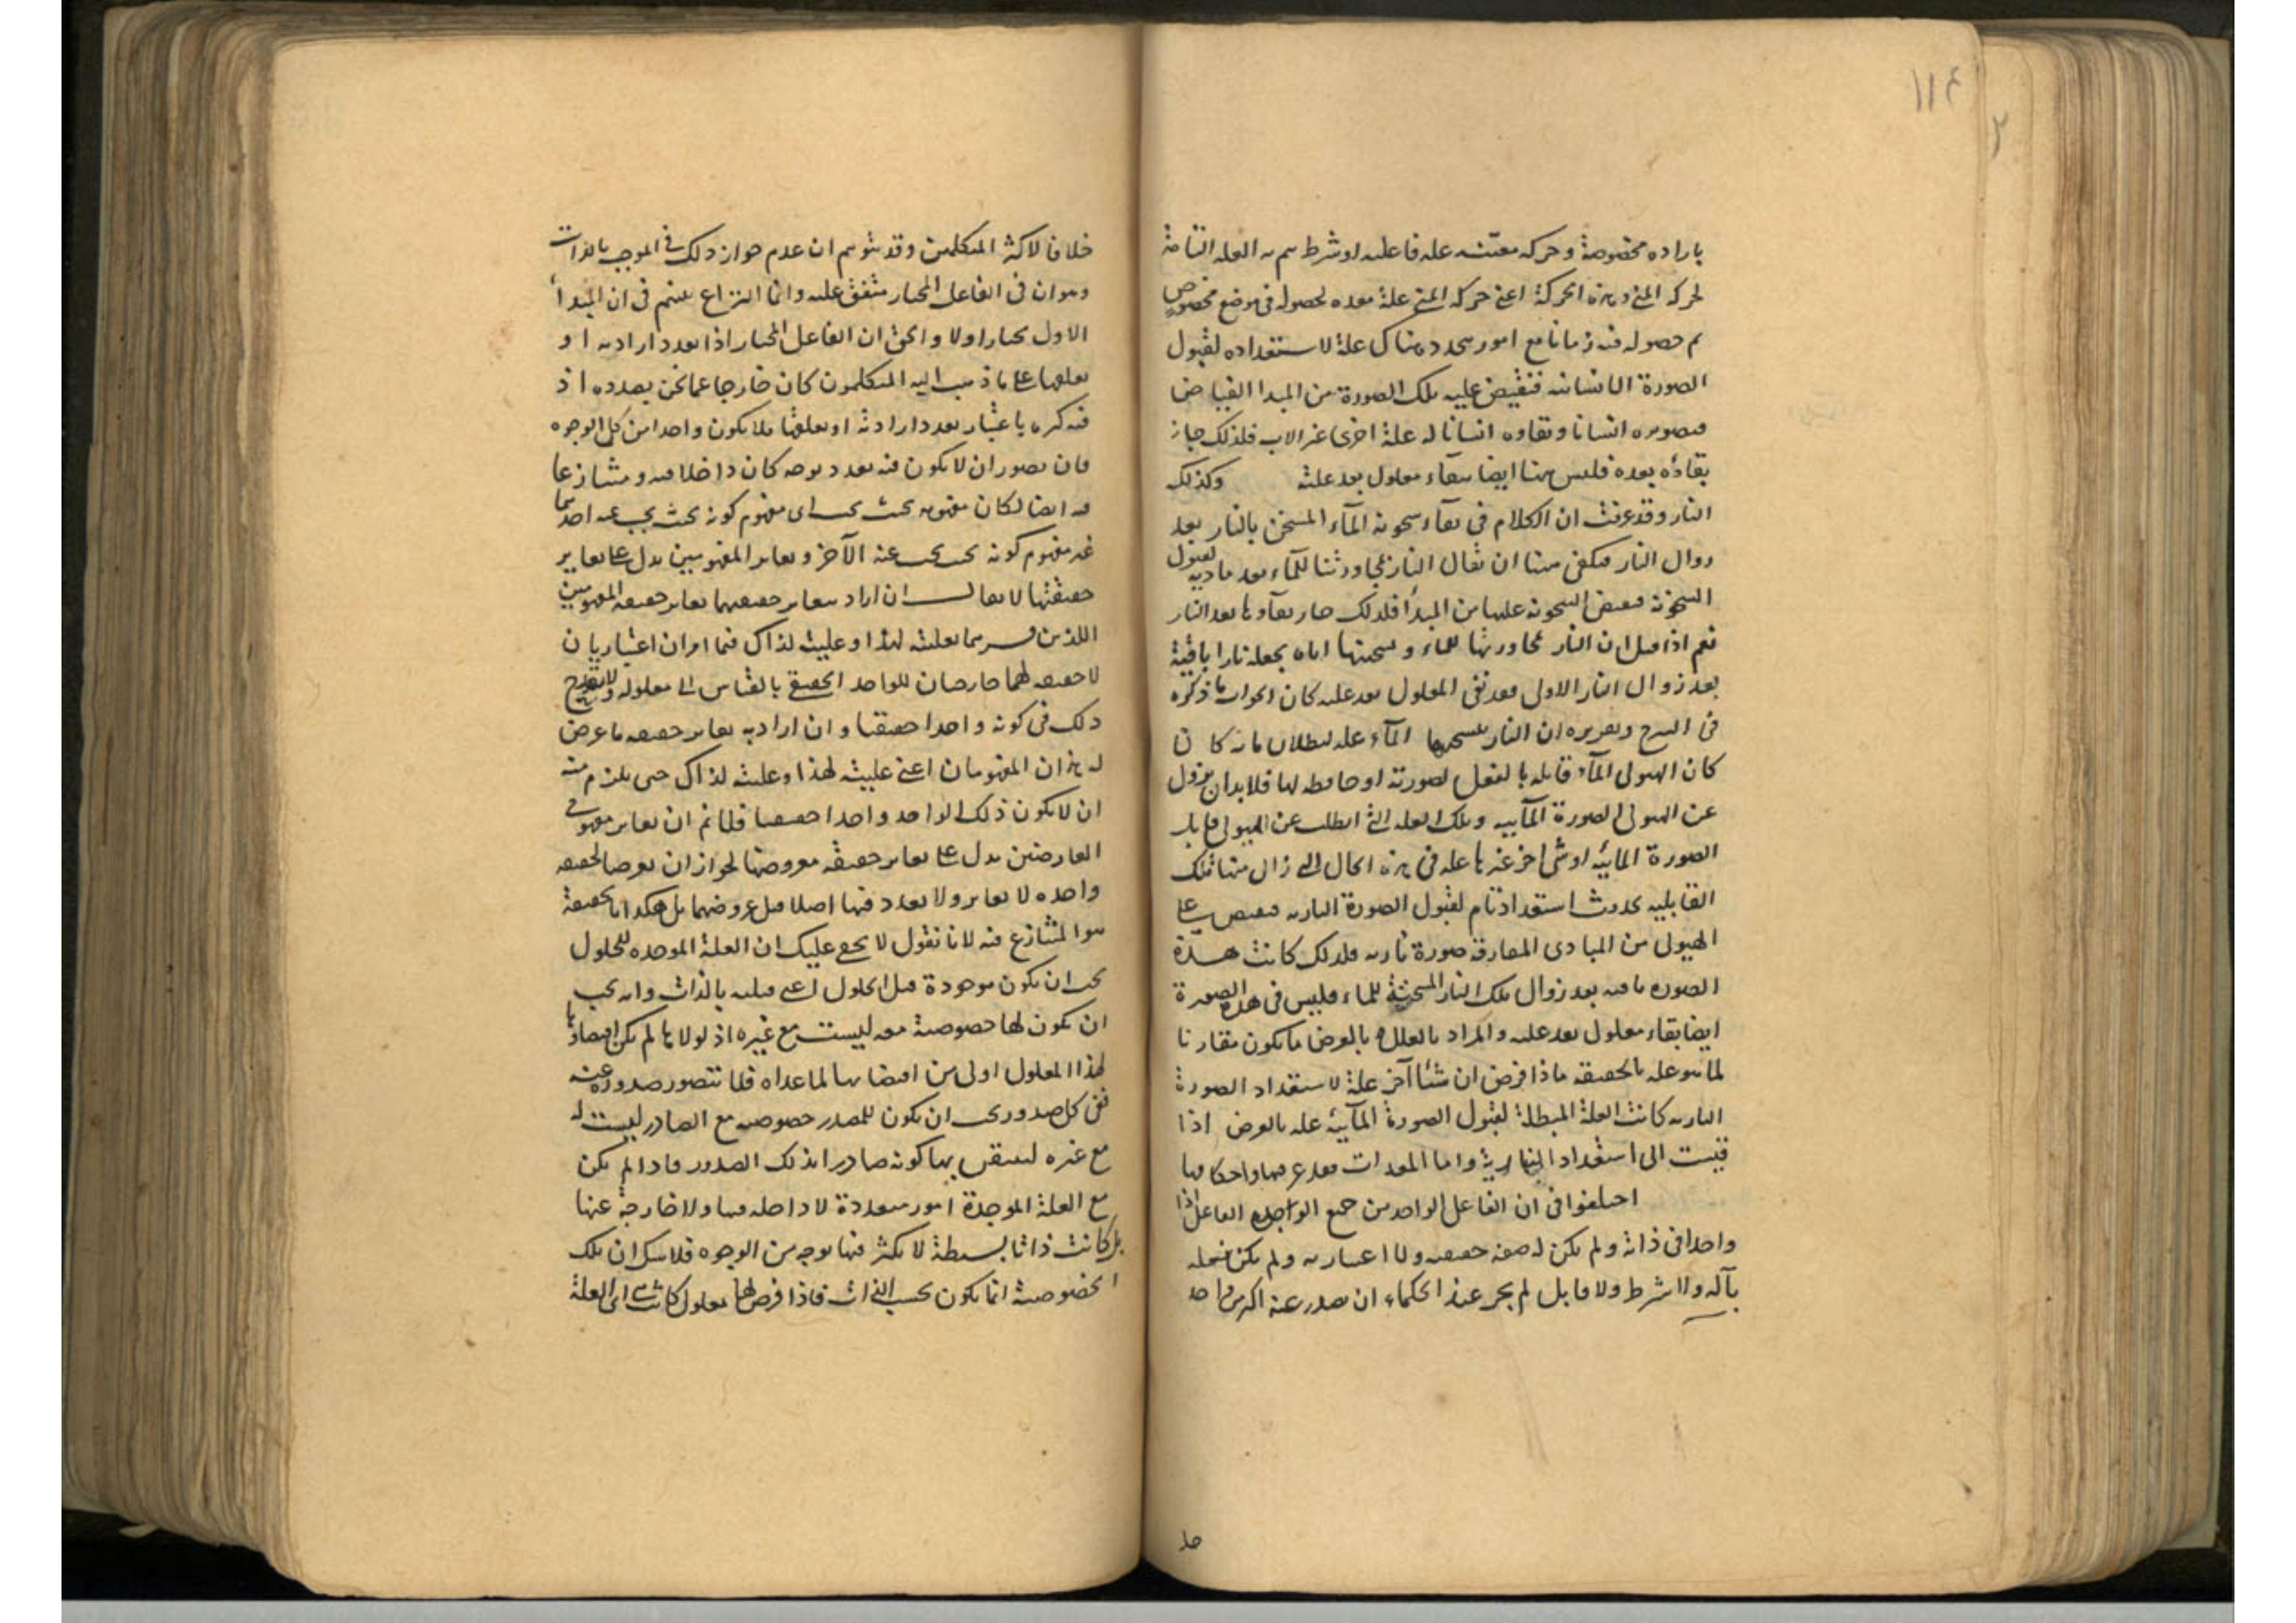 ١١٤
٢
بارادة مخصوصة وحركة معينة علة فاعلية او شرط متمم به العلة التامة
لحركة المني وهذه الحركة اعني حركة المني علة معدة لحصوله في موضع مخصوص
ثم حصوله فيه زمانا مع امور متجددة هناك علة لاستعداده لقبول
الصورة الانسانية فتفيض عليه تلك الصورة من المبدا الفياض
فصيرورته انسانا وبقاؤه انسانا له علة اخرى غير الاب فلذلك جاز
بقاؤه بعده فليس هنا ايضا بقاء معلول بعد علته وكذلك
النار وقد عرفت ان الكلام في بقاء سخونة الماء المسخن بالنار بعد
زوال النار فيكفي هنا ان يقال النار بمجاورتنا للماء بعد مادته لقبول
السخونة فيفيض السخونة عليها من المبدأ فلذلك جاز بقاؤها بعد النار
نعم اذا قيل ان النار بمجاورتها للماء وتسخينها اياه يجعله نارا باقية
بعد زوال النار الاولى فقد بقي المعلول بعد علته كان الجواب ما ذكره
في الشرح وتقريره ان النار بتسخينها الماء علة لبطلان ما به كا ن
كان الهيولى الماء قابلة بالفعل لصورته او حافظة لها فلا بد ان يزول
عن الهيولى الصورة المائية وتلك العلة التي ابطلت عن الهيولى قابلية
الصورة المائية او شئ اخر غيرها علة في هذه الحال التي زال منها تلك
القابلية بحدوث استعداد تام لقبول الصورة النارية فيفيض على
الهيولى من المبادى المفارقة صورة نارية فلذلك كانت هذه
الصورة باقية بعد زوال تلك النار المسخنة للماء فليس في هذه الصورة
ايضا بقاء معلول بعد علته والمراد بالعلل بالعرض ما يكون مقارنا
لما هو علة بالحقيقة فاذا فرض ان شئا آخر علة لاستعداد الصورة
النارية كانت العلة المبطلة لقبول الصورة المائية علة بالعرض اذا
قيست الى استعداد النارية واما المعدات فقد عرفتها واحكامها
اختلفوا في ان الفاعل الواحد من جميع الواجوه الفاعل اذا
واحدا في ذاته ولم يكن له صفة حقيقية ولا اعتبارية ولم يكن فعله
بآلة ولا شرط ولا قابل لم يجز عند الحكماء ان يصدر عنه اكثر من واحد
خلافا لاكثر المتكلمين وقد يتوهم ان عدم جواز ذلك في الموجب بالذات
وجوازه في الفاعل المختار متفق عليه وانما النزاع بينهم في ان المبدأ
الاول مختار او لا والحق ان الفاعل المختار اذا تعدد ارادته او
تعلقها على ما ذهب اليه المتكلمون كان خارجا عما نحن بصدده اذ
فيه كثرة باعتبار تعدد ارادته او تعلقها فلا يكون واحدا من كل الوجوه
فان تصور ان لا يكون فيه تعدد بوجه كان داخلا فيه ومتنازعا
فيه ايضا لكان مفهومه بحيث يجب اي مفهوم كونه بحيث يجب عنه احدهما
غير مفهوم كونه بحيث يجب عنه الآخر وتغاير المفهومين يدل على تغاير
حقيقتهما لا يقال ان اراد بتغاير حقيقتهما تغاير حقيقة المفهومين
اللذين فسرهما بعليته لهذا وعليته لذاك فهما امران اعتباريان
لا حقيقة لهما عارضان للواحد الحقيقي بالقياس الى معلوله ولا يقدح
ذلك في كونه واحدا حقيقيا وان اراد به تغاير حقيقة ما عرض
له هذان المفهومان اعني عليته لهذا وعليته لذاك حتى يلزم منه
ان لا يكون ذلك الواحد واحدا حقيقيا فلا نم ان تغاير مفهومي
العارضين يدل على تغاير حقيقة معروضهما لجواز ان يعرضا لحقيقة
واحدة لا تغاير ولا تعدد فيها اصلا قبل عروضهما بل هكذا بالحقيقة
هو المتنازع فيه لانا نقول لا يخفى عليك ان العلة الموجدة للمعلول
يجب ان يكون موجودة قبل المعلول اعني قبلية بالذات وانه يجب
ان يكون لها خصوصية معه ليست مع غيره اذ لولاها لم يكن اقتضاؤها
لهذا المعلول اولى من اقتضائها لما عداه فلا يتصور صدوره عنه
ففي كل صدور يجب ان يكون للمصدر خصوصية مع الصادر ليست له
مع غيره ليتعين بها كونه صادرا بذلك الصدور فاذا لم يكن
مع العلة الموجدة امور متعددة لا داخلة فيها ولا خارجة عنها
بل كانت ذاتا بسيطة لا تكثر فيها بوجه من الوجوه فلا شك ان تلك
الخصوصية انما يكون بحسب الذات فاذا فرض لها معلول كانت اي العلة